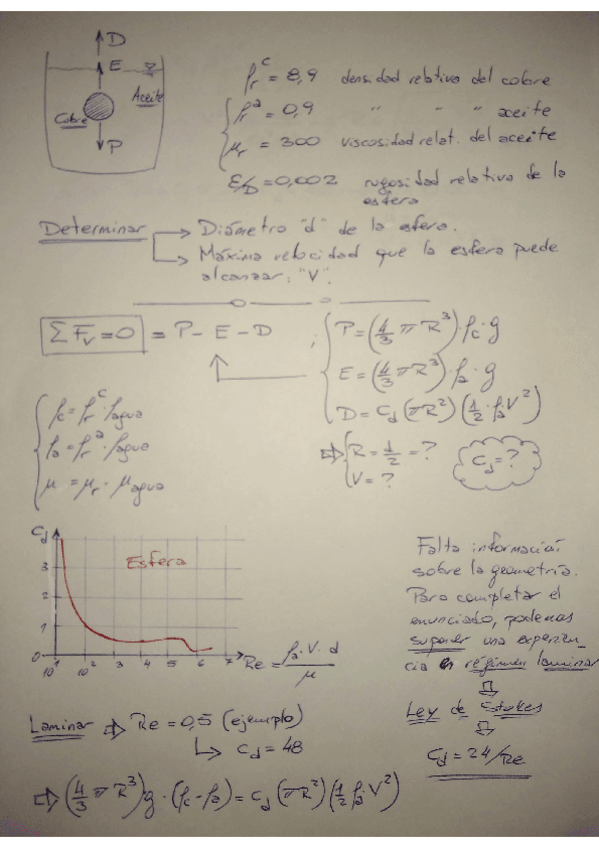 D
E
Aceite
Cobre
P
ρr^c = 8,9 densidad relativa del cobre
ρr^a = 0,9 " " " aceite
μr = 300 viscosidad relat. del aceite
E/D = 0,002 rugosidad relativa de la
esfera
Determinar → Diámetro "d" de la esfera.
→ Máxima velocidad que la esfera puede
alcanzar: "V".
ΣFv = 0 = P - E - D ; P = (4/3 π R³) · ρc · g
E = (4/3 π R³) · ρa · g
D = Cd (π R²) (1/2 · ρa V²)
ρc = ρr^c · ρagua
ρa = ρr^a · ρagua
μ = μr · μagua
⇒ R = d/2 = ?
V = ?
Cd = ?
Cd
Esfera
3
2
1
0
10¹ 10² 3 4 5 6 7
Re = ρa · V · d / μ
Falta información
sobre la geometría.
Para completar el
enunciado, podemos
suponer una experien_
cia en régimen laminar
Ley de Stokes
Cd = 24/Re
Laminar ⇒ Re = 0,5 (ejemplo)
↳ Cd = 48
⇒ (4/3 π R³) g · (ρc - ρa) = Cd (π R²) (1/2 ρa V²)